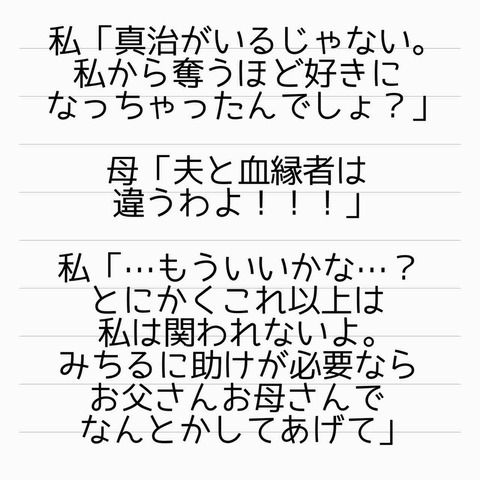 私「真治がいるじゃない。
私から奪うほど好きに
なっちゃったんでしょ？」
母「夫と血縁者は
違うわよ！！！」
私「…もういいかな…？
とにかくこれ以上は
私は関われないよ。
みちるに助けが必要なら
お父さんお母さんで
なんとかしてあげて」